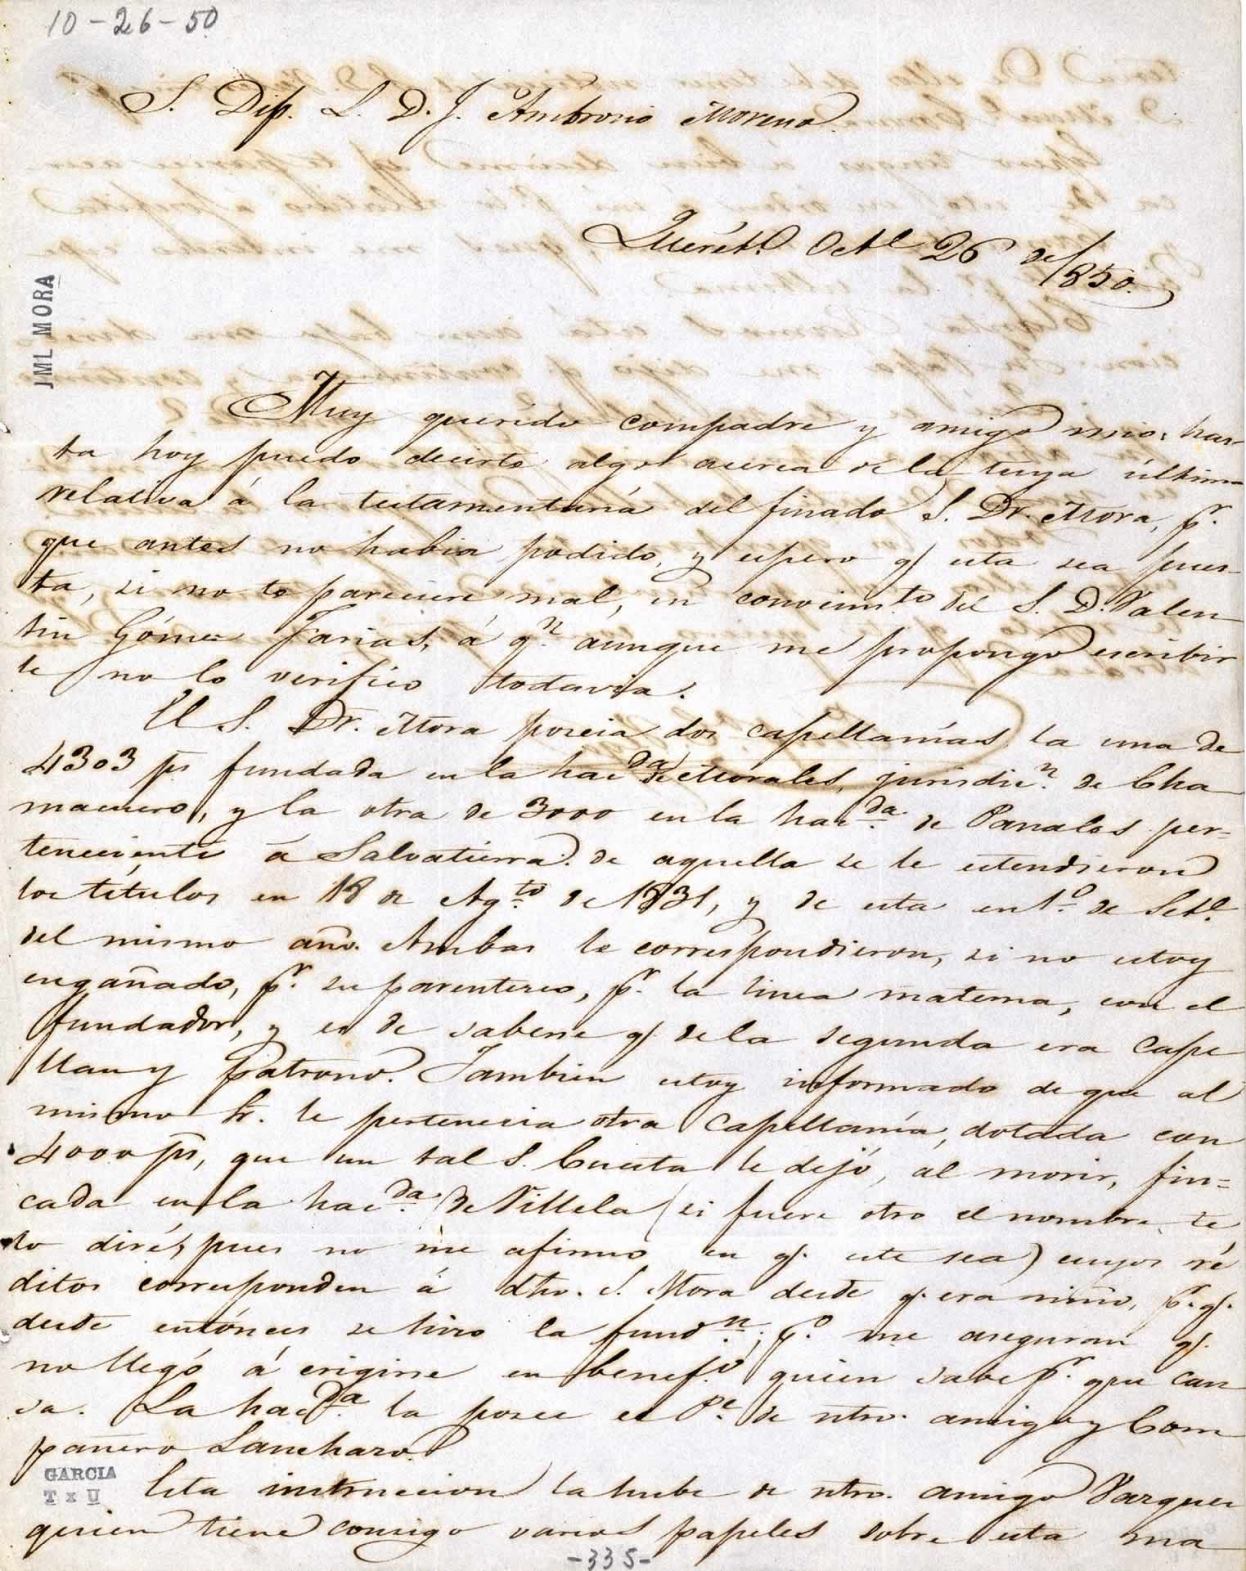 10-26-50
S. Dip. L. D. J. Ambrosio Moreno.
Querét.o Oct.e 26 de 1850.
JML MORA
Muy querido compadre y amigo mio: has-
ta hoy puedo decirte algo acerca de la tuya última
relativa á la testamentaria del finado S. Dr. Mora, p.r
que antes no habia podido, y espero q/ esta sea pues-
ta, si no te pareciere mal, en conocim.to del S. D. Valen-
tin Gómez Farias, á q.n aunque me propongo escribir
le no lo verifico todavia.
El S. Dr. Mora poseia dos capellanías, la una de
4303 ps fundada en la hac.da de Morales, jurisdic.n de Cha
macuero, y la otra de 3000 en la hac.da de Panales per-
teneciente á Salvatierra. de aquella se le estendieron
los títulos en 18 de Ag.to de 1831, y de esta en 1.o de Set.e
del mismo año. Ambas le correspondieron, si no estoy
engañado, p.r su parentesco, p.r la linea materna, con el
fundador, y es de saberse q/ de la segunda era cape
llan y patrono. Tambien estoy informado de que al
mismo Sr. le pertenecia otra Capellanía, dotada con
4000 ps, que un tal S. Cuesta le dejó, al morir, fin=
cada en la hac.da de Villela (si fuere otro el nombre te
lo diré, pues no me afirmo en q/ este sea) cuyos ré
ditos corresponden á dho. S. Mora desde q/ era niño, p.r q/.
desde entónces se hizo la fund.n; p.o me aseguran q/.
no llegó á erigirse en benef.o quien sabe p.r que cau
sa. La hac.da la posee el P.e de ntro. amigo y Com
pañero Lancharo.
GARCIA
T x U
Esta instruccion la hube de ntro. amigo Vazquez
quien tiene consigo varios papeles sobre esta ma
-335-